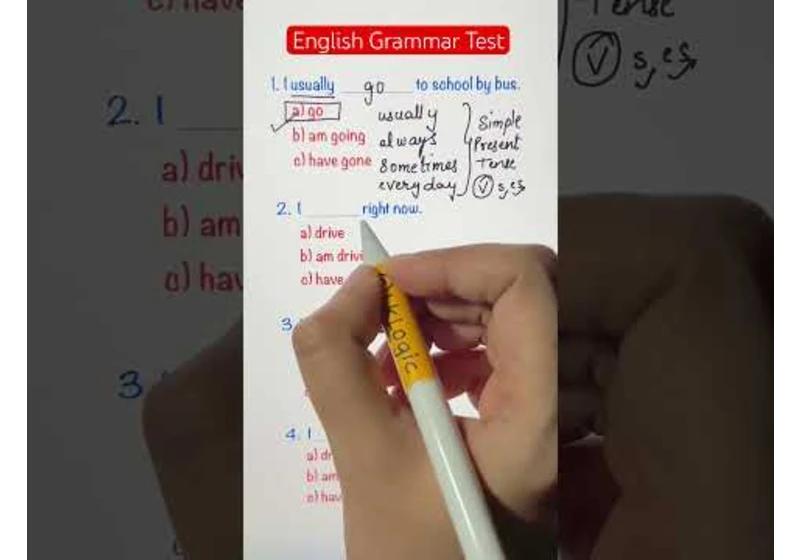 English Grammar Test
1. I usually go to school by bus.
a) go
b) am going
c) have gone
usually
always
sometimes
everyday
Simple
Present
Tense
V s, es
2. I ______ right now.
a) drive
b) am drivi
c) have
3.
4. I
a) dr
b) am
c) hav